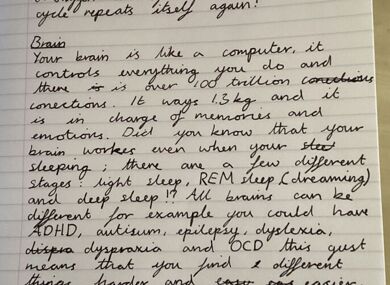 cycle repeats itself again!
Brain
Your brain is like a computer, it
controls everything you do and
there is is over 100 trillion conections
conections. It ways 1.3kg and it
is in charge of memories and
emotions. Did you know that your
brain workes even when your slee
sleeping; there are a few different
stages: light sleep, REM sleep (dreaming)
and deep sleep!? All brains can be
different for example you could have
ADHD, autisum, epilepsy, dyslexia,
dispra dyspraxia and OCD this gust
means that you find different
things harder and easier